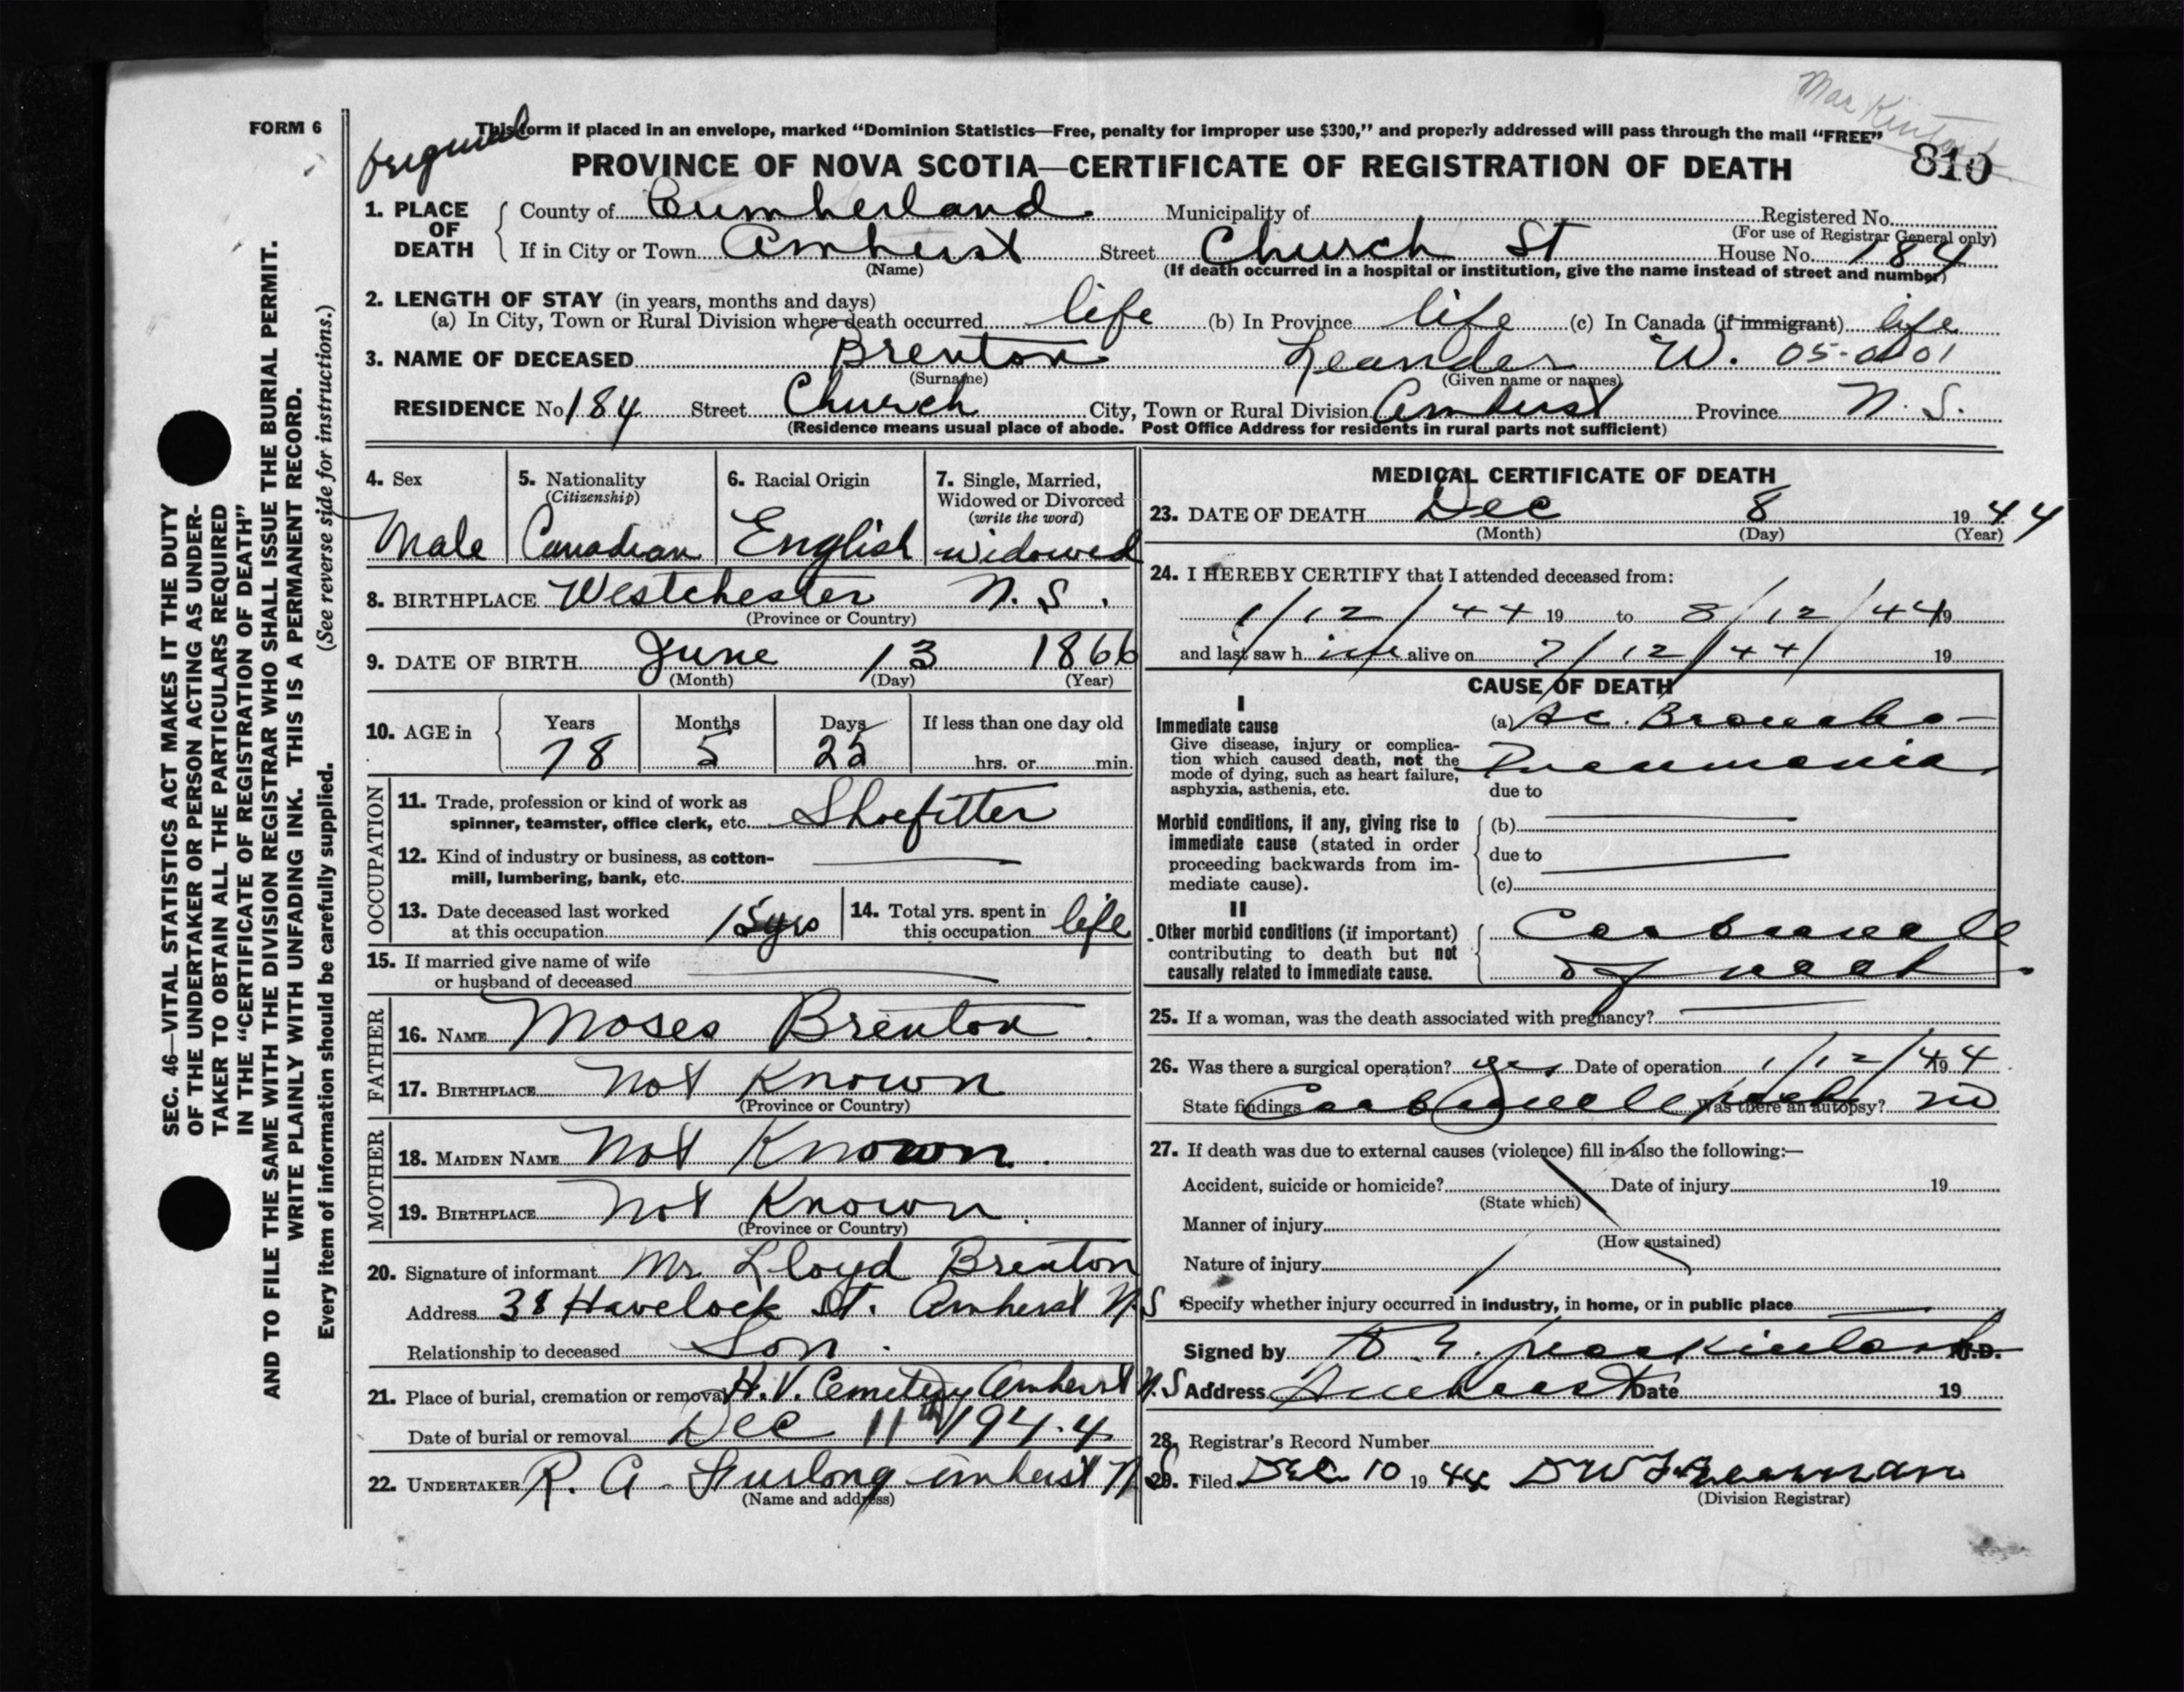 Mac Kintosh
FORM 6
Original
This form if placed in an envelope, marked "Dominion Statistics—Free, penalty for improper use $300," and properly addressed will pass through the mail "FREE"
PROVINCE OF NOVA SCOTIA—CERTIFICATE OF REGISTRATION OF DEATH
810
1. PLACE OF DEATH
County of Cumberland Municipality of Registered No.
(For use of Registrar General only)
If in City or Town Amherst Street Church St House No. 184
(Name) (If death occurred in a hospital or institution, give the name instead of street and number)
2. LENGTH OF STAY (in years, months and days)
(a) In City, Town or Rural Division where death occurred life (b) In Province life (c) In Canada (if immigrant) life
3. NAME OF DECEASED Brenton Leander W. 05-0101
(Surname) (Given name or names)
RESIDENCE No 184 Street Church City, Town or Rural Division Amherst Province N. S.
(Residence means usual place of abode. Post Office Address for residents in rural parts not sufficient)
4. Sex
Male
5. Nationality
(Citizenship)
Canadian
6. Racial Origin
English
7. Single, Married,
Widowed or Divorced
(write the word)
widowed
8. BIRTHPLACE Westchester N. S.
(Province or Country)
9. DATE OF BIRTH June 13 1866
(Month) (Day) (Year)
10. AGE in
Years Months Days If less than one day old
78 5 25 hrs. or min.
OCCUPATION
11. Trade, profession or kind of work as
spinner, teamster, office clerk, etc. Shoefitter
12. Kind of industry or business, as cotton-
mill, lumbering, bank, etc.
13. Date deceased last worked
at this occupation 15 yrs
14. Total yrs. spent in
this occupation life
15. If married give name of wife
or husband of deceased
FATHER
16. NAME Moses Brenton
17. BIRTHPLACE Not Known
(Province or Country)
MOTHER
18. MAIDEN NAME Not Known
19. BIRTHPLACE Not Known
(Province or Country)
20. Signature of informant Mr Lloyd Brenton
Address 38 Havelock St. Amherst N.S
Relationship to deceased Son
21. Place of burial, cremation or removal H. V. Cemetery Amherst N.S
Date of burial or removal Dec 11th 1944
22. UNDERTAKER R. A. Furlong Amherst N S
(Name and address)
MEDICAL CERTIFICATE OF DEATH
23. DATE OF DEATH Dec 8 1944
(Month) (Day) (Year)
24. I HEREBY CERTIFY that I attended deceased from:
1/12/44 19 to 8/12/44 19
and last saw h im alive on 7/12/44/ 19
CAUSE OF DEATH
I
Immediate cause
Give disease, injury or complica-
tion which caused death, not the
mode of dying, such as heart failure,
asphyxia, asthenia, etc.
(a) Ac. Broncho-
Pneumonia
due to
Morbid conditions, if any, giving rise to
immediate cause (stated in order
proceeding backwards from im-
mediate cause).
(b)
due to
(c)
II
Other morbid conditions (if important)
contributing to death but not
causally related to immediate cause.
Carbuncle
of neck
25. If a woman, was the death associated with pregnancy?
26. Was there a surgical operation? yes Date of operation 1/12/44 19
State findings Carbuncle neck Was there an autopsy? no
27. If death was due to external causes (violence) fill in also the following:—
Accident, suicide or homicide? Date of injury 19
(State which)
Manner of injury
(How sustained)
Nature of injury
Specify whether injury occurred in industry, in home, or in public place
Signed by MacKintosh M.D.
Address Amherst Date 19
28. Registrar's Record Number
29. Filed DEC 10 1944
(Division Registrar)
SEC. 46—VITAL STATISTICS ACT MAKES IT THE DUTY
OF THE UNDERTAKER OR PERSON ACTING AS UNDER-
TAKER TO OBTAIN ALL THE PARTICULARS REQUIRED
IN THE "CERTIFICATE OF REGISTRATION OF DEATH"
AND TO FILE THE SAME WITH THE DIVISION REGISTRAR WHO SHALL ISSUE THE BURIAL PERMIT.
WRITE PLAINLY WITH UNFADING INK. THIS IS A PERMANENT RECORD.
Every item of information should be carefully supplied. (See reverse side for instructions.)